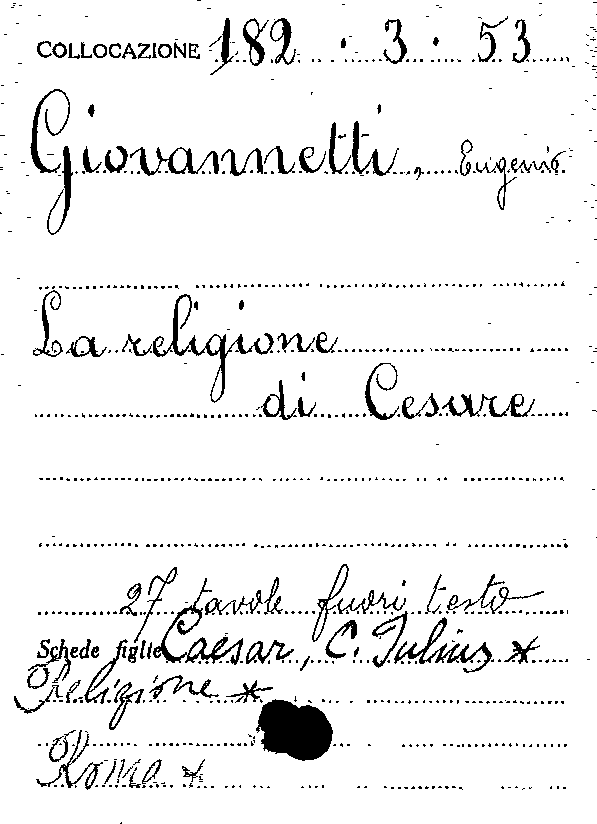 COLLOCAZIONE 182 . 3 . 53
Giovannetti, Eugenio
La religione
di Cesare
27 tavole fuori testo
Schede figlie Caesar, C. Iulius *
Religione *
Roma *